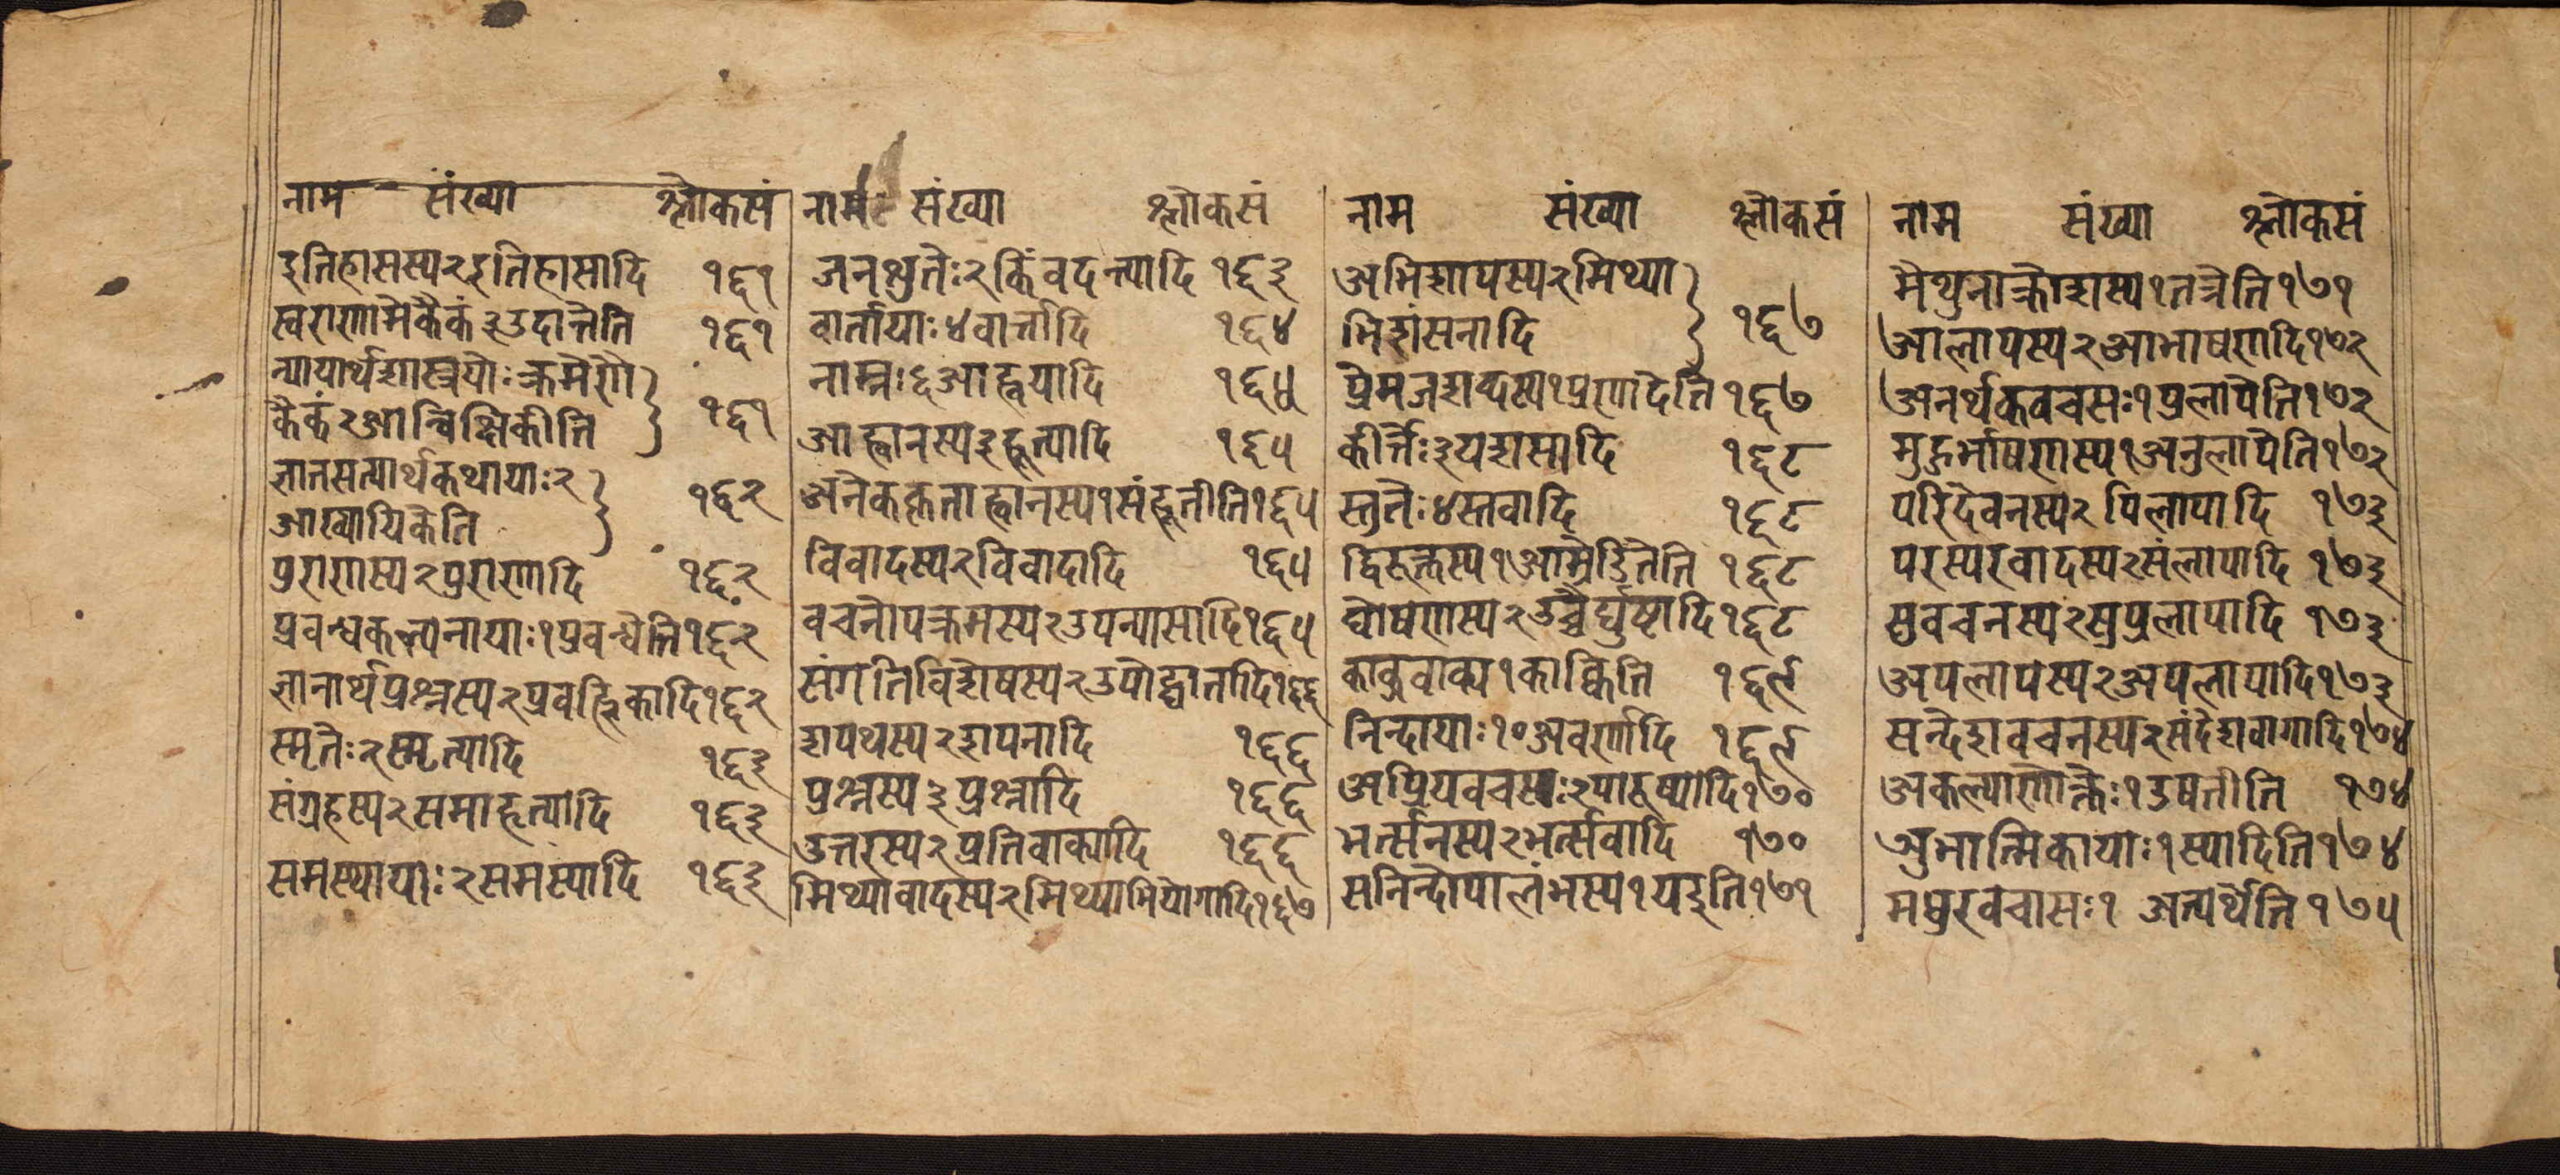 नाम संख्या श्लोकसं
इतिहासस्य२इतिहासादि १६१
स्वराणामेकैकं३उदात्तेति १६१
न्यायार्थशास्त्रयोःक्रमेणै
कैकं२आन्विक्षिकीति १६१
ज्ञातसत्यार्थकथायाः२
आख्यायिकेति १६२
पुराणस्य२पुराणादि १६२
प्रवन्धकल्पनायाः१प्रवन्धेति१६२
ज्ञानार्थप्रश्नस्य२प्रवह्लिकादि१६२
स्मृतेः२स्मृत्यादि १६३
संग्रहस्य२समाहृत्यादि १६३
समस्यायाः२समस्यादि १६३
नाम संख्या श्लोकसं
जनश्रुतेः२किंवदन्त्यादि १६३
वार्तायाः४वार्त्तादि १६४
नाम्नः६आह्वयादि १६५
आह्वानस्य३हूत्यादि १६५
अनेककृताह्वानस्य१संहूतीति१६५
विवादस्य२विवादादि १६५
वचनोपक्रमस्य२उपन्यासादि१६५
संगतिविशेषस्य२उपोद्घातादि१६६
शपथस्य२शपनादि १६६
प्रश्नस्य३प्रश्नादि १६६
उत्तरस्य२प्रतिवाक्यादि १६६
मिथ्यावादस्य२मिथ्याभियोगादि१६७
नाम संख्या श्लोकसं
अभिशापस्य२मिथ्या
भिशंसनादि १६७
प्रेमजशव्दस्य१प्रणादेति १६७
कीर्त्तेः३यशसादि १६८
स्तुतेः४स्तवादि १६८
द्विरुक्तस्य१आम्रेडितेति १६८
घोषणस्य२उच्चैर्घुष्टादि१६८
काकुवाक्य१काक्विति १६९
निन्दायाः१०अवर्णादि १६९
अप्रियवचसः२पारुष्यादि१७०
भर्त्सनस्य२भर्त्सवादि १७०
सनिन्दोपालंभस्य१यइति१७१
नाम संख्या श्लोकसं
मैथुनाक्रोशस्य१तत्रेति१७१
आलापस्य२आभाषणादि१७२
अनर्थकवचसः१प्रलापेति१७२
मुहुर्भाषणस्य१अनुलापेति१७२
परिदेवनस्य२पिलापादि १७३
परस्परवादस्य२संलापादि १७३
सुवचनस्य२सुप्रलापादि १७३
अपलापस्य२अपलापादि१७३
सन्देशवचनस्य२संदेशवागादि१७४
अकल्याणोक्तेः१उषतीति १७४
शुभात्मिकायाः१स्यादिति१७४
मधुरवचासः१ अत्यर्थेति१७५